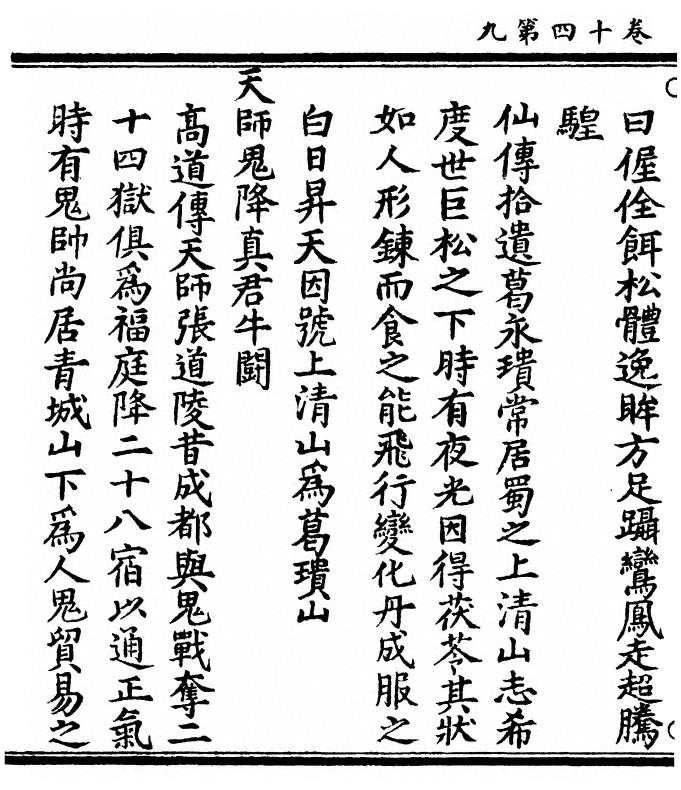 卷十四第九
曰偓佺餌松體逸眸方足躡鸞鳳走超騰
騜
仙傳拾遺葛永璝常居蜀之上清山志希
度世巨松之下時有夜光因得茯苓其狀
如人形鍊而食之能飛行變化丹成服之
白日昇天因號上清山為葛璝山
天師鬼降真君牛鬪
高道傳天師張道陵昔成都與鬼戰奪二
十四獄俱為福庭降二十八宿以通正氣
時有鬼帥尚居青城山下為人鬼貿易之